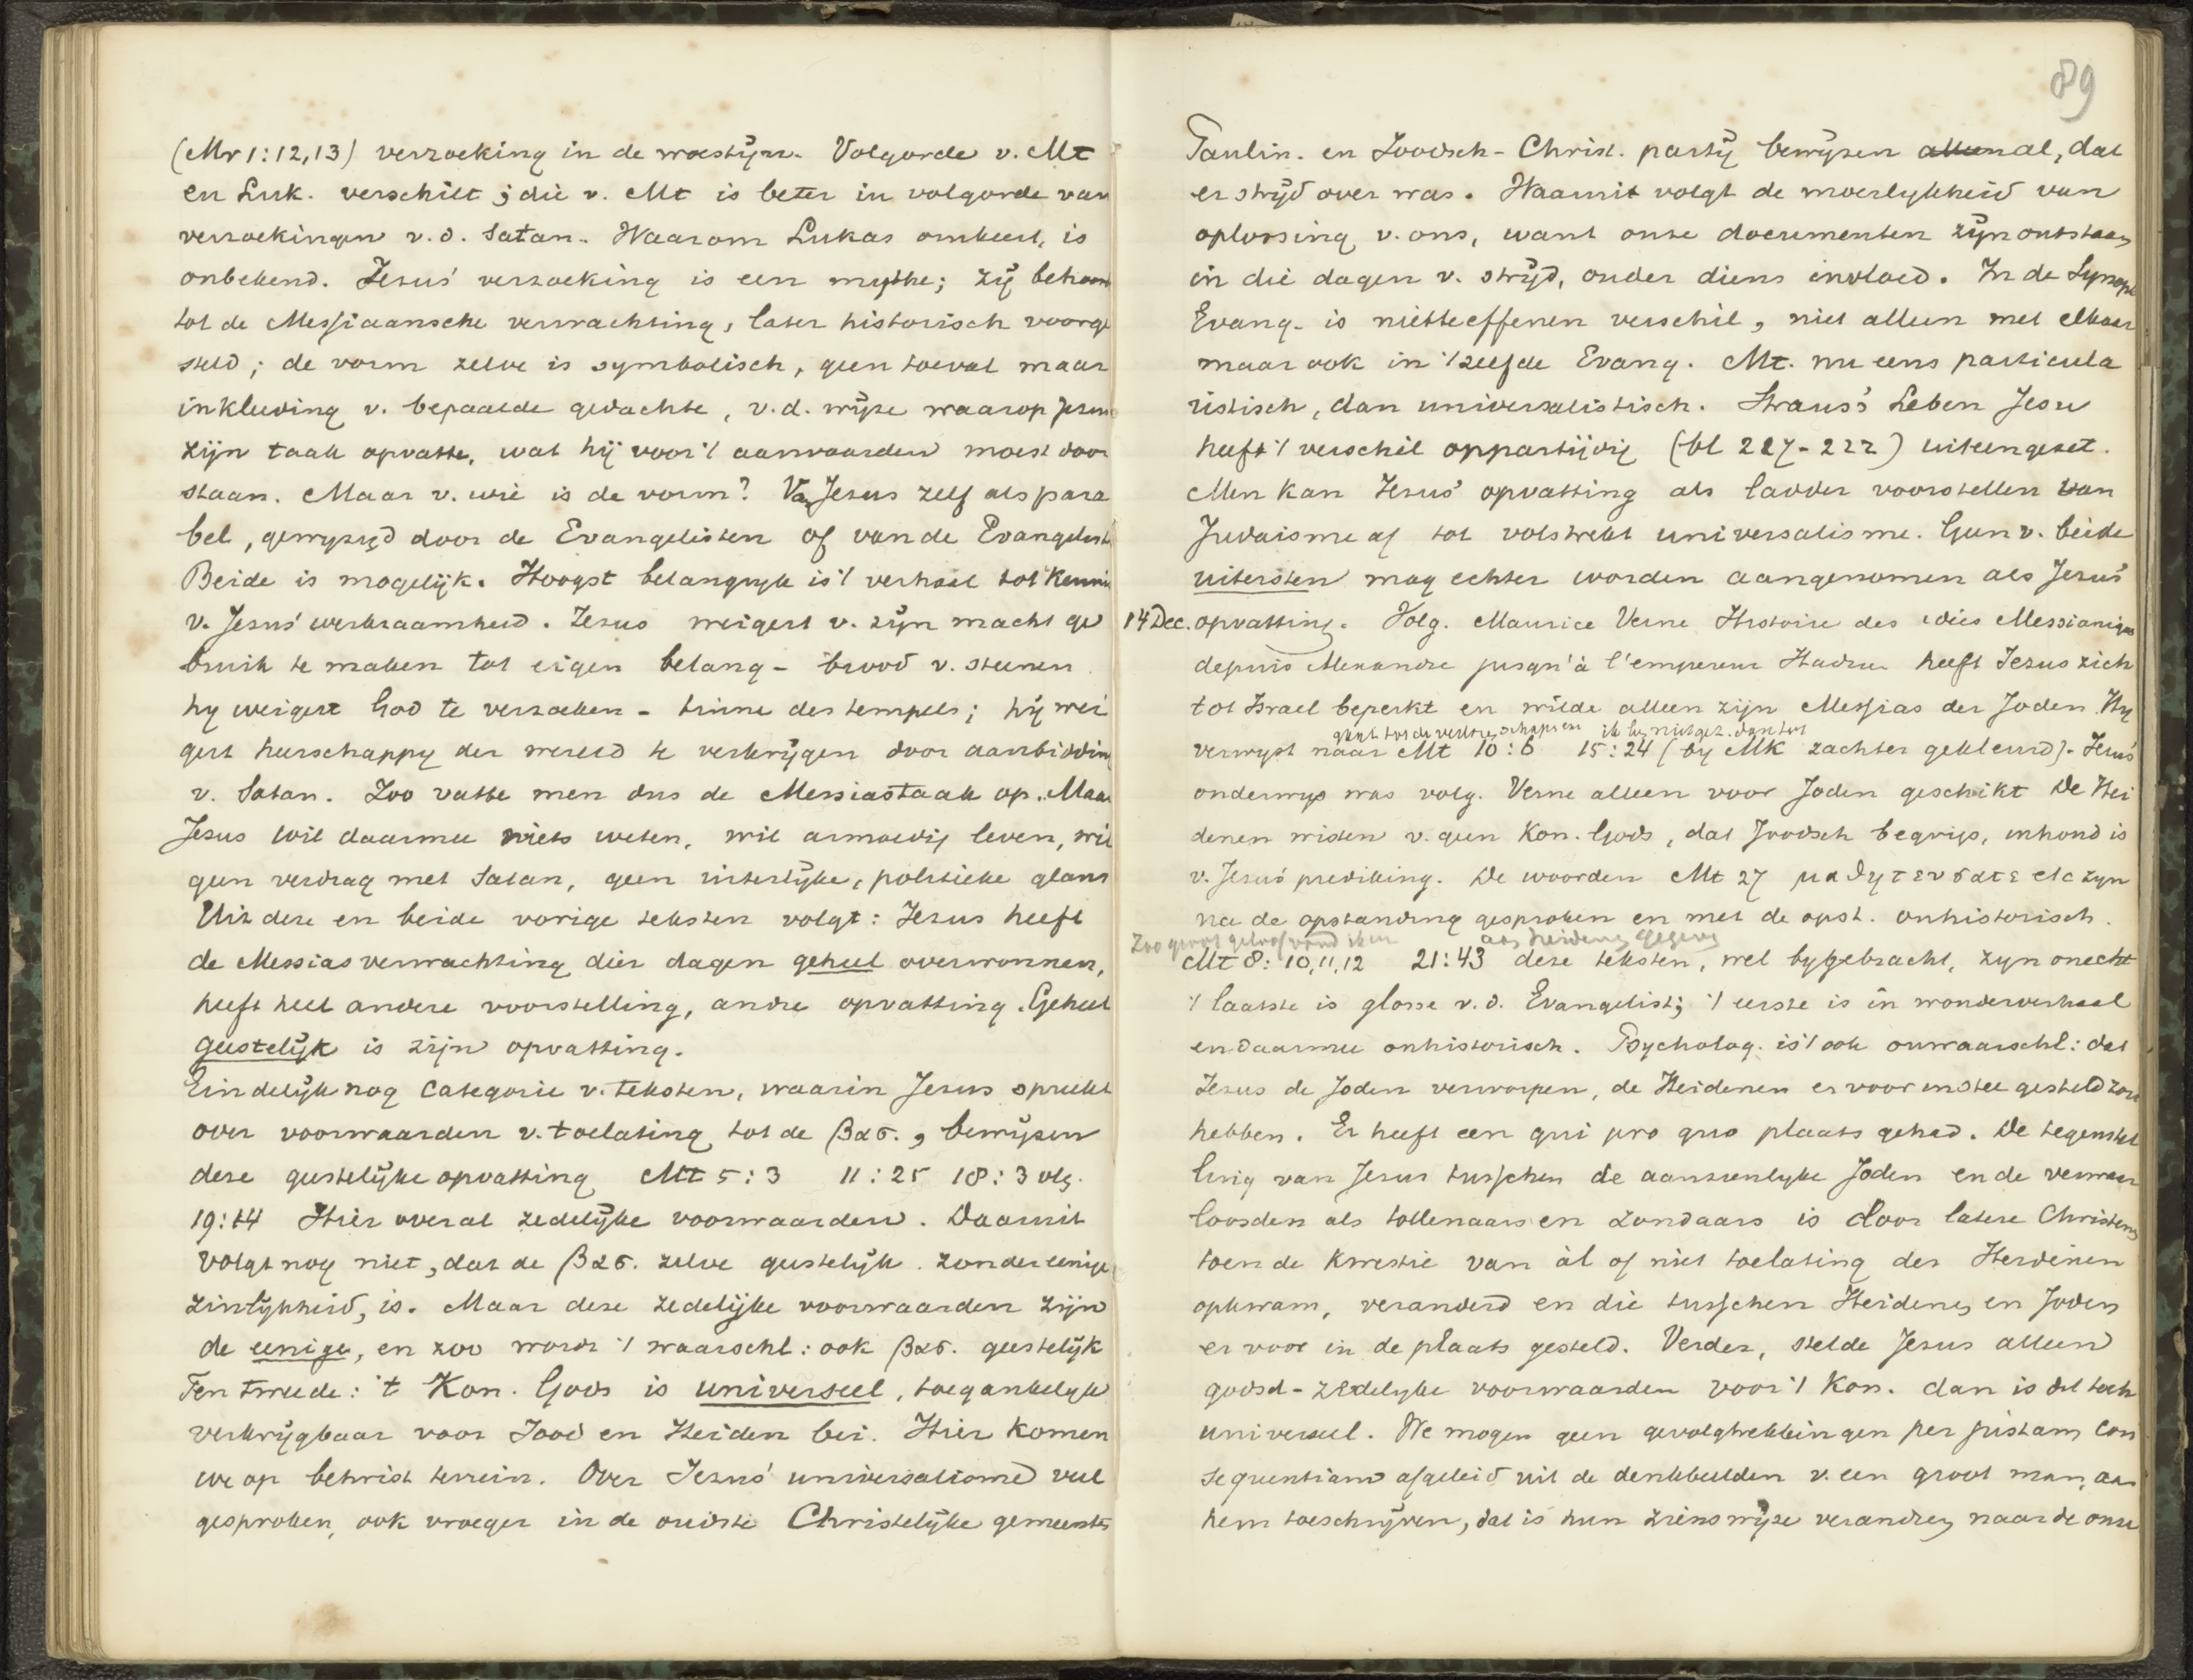 (Mr 1:12,13) verzoeking in de woestijn. Volgorde v. Mt
en Luk. verschilt ; die v. Mt is beter in volgorde van
verzoekingen v.d. Satan. Waarom Lukas omkeert, is
onbekend. Jezus' verzoeking is een mythe; zij behoort
tot de Messiaansche verwachting, later historisch voorge
steld; de vorm zelve is symbolisch, geen toeval maar
inkleeding v. bepaalde gedachte, v.d. wijze waarop Jezus
zijn taak opvatte, wat hij voor 't aanvaarden moest door
staan. Maar v. wie is de vorm? Van Jezus zelf als para
bel, gewijzigd door de Evangelisten of van de Evangelist
Beide is mogelijk. Hoogst belangrijk is 't verhaal tot kennis
v. Jezus' werkzaamheid. Jezus weigert v. zijn macht ge
bruik te maken tot eigen belang - brood v. steenen
hy weigert God te verzoeken - tinne des tempels; hij wei
gert heerschappy der wereld te verkrijgen door aanbidding
v. Satan. Zoo vatte men dus de Messiastaak op. Maar
Jezus wil daarmee niets weten, wil armoedig leven, wil
geen verdrag met Satan, geen uiterlijke, politieke glans
Uit deze en beide vorige teksten volgt: Jezus heeft
de Messiasverwachting dier dagen geheel overwonnen,
heeft heel andere voorstelling, andre opvatting. Geheel
geestelijk is zijn opvatting.
Eindelijk nog categorie v. teksten, waarin Jezus spreekt
over voorwaarden v. toelating tot de βας., bewijzen
deze geestelijke opvatting Mt 5:3 11:25 18:3 vlg.
19:14 Hier overal zedelijke voorwaarden. Daaruit
volgt nog niet, dat de βας. zelve geestelijk. zonder eenige
zinlijkheid, is. Maar deze zedelijke voorwaarden zijn
de eenige, en zoo wordt 't waarschl: ook βας. geestelijk
Ten tweede: 't Kon. Gods is universeel, toegankelijk
verkrijgbaar voor Jood en Heiden bei. Hier komen
we op betwist terrein. Over Jezus' universalisme veel
gesproken, ook vroeger in de oudste Christelijke gemeente
89
Paulin. en Joodsch-Christ. partij bewijzen al, dat
er strijd over was. Waaruit volgt de moeilijkheid van
oplossing v. ons, want onze documenten zijn ontstaan
in die dagen v. strijd, onder diens invloed. In de Synopt
Evang. is niet te effenen verschil, niet alleen met elkaar
maar ook in 't zelfde Evang. Mt. nu eens particula
ristisch, dan universalistisch. Strauss' Leben Jesu
heeft 't verschil onpartijdig (bl 217-222) uiteengezet.
Men kan Jezus' opvatting als ladder voorstellen van
Judaisme af tot volstrekt universalisme. Geen v. beide
uitersten mag echter worden aangenomen als Jezus'
14 Dec. opvatting. Volg. Maurice Verne Histoire des idées Messianiques
depuis Alexandre jusqu'à l'empereur Hadrien heeft Jezus zich
tot Israel beperkt en wilde alleen zijn Messias der Joden. Hy
gaat tot de verloren schapen ik ben niet gez. dan tot
verwyst naar Mt 10:6 15:24 (by Mk zachter gekleurd). Jezus'
onderwys was volg. Verne alleen voor Joden geschikt De Hei
denen wisten v. geen Kon. Gods, dat Joodsch begrip, inhoud is
v. Jezus' prediking. De woorden Mt 27 μαθητευσατε etc zyn
na de opstanding gesproken en met de opst. onhistorisch.
Zoo groot geloof vond ik aan heidenen gegeven
Mt 8: 10,11,12 21:43 deze teksten, wel bygebracht, zyn onecht
't laatste is glosse v.d. Evangelist; 't eerste is in wonderverhaal
en daarmee onhistorisch. Psycholog. is 't ook onwaarschl: dat
Jezus de Joden verworpen, de Heidenen er voor in stee gesteld zou
hebben. Er heeft een qui pro quo plaats gehad. De tegenstel
ling van Jezus tusschen de aanzienlyke Joden en de verwaar
loosden als tollenaars en zondaars is door latere Christenen
toen de kwestie van àl of niet toelating der Heidenen
opkwam, veranderd en die tusschen Heidenen en Joden
er voor in de plaats gesteld. Verder, stelde Jezus alleen
godsd-zedelyke voorwaarden voor 't Kon. dan is dit toch
universeel. We mogen geen gevolgtrekkingen per justam con
sequentiam afgeleid uit de denkbeelden v. een groot man, aan
hem toeschrijven, dat is hun zienswijze veranderen naar de onze